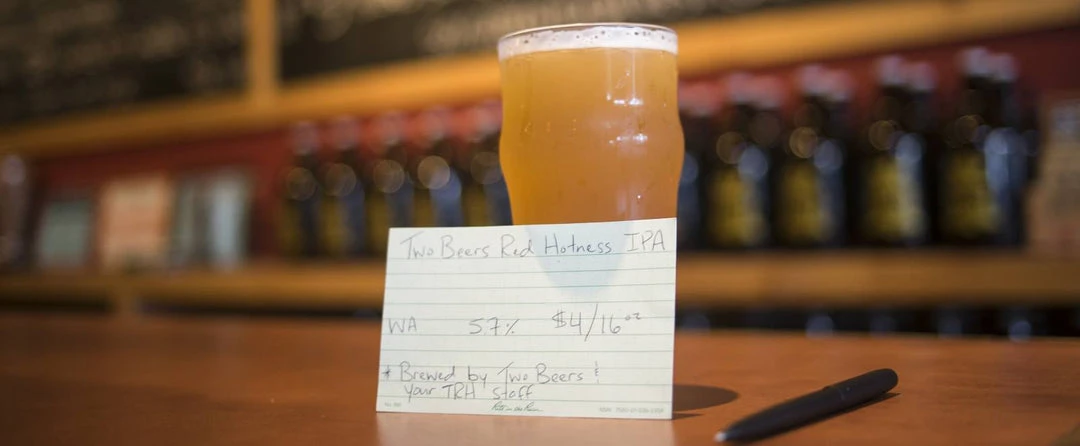 Two Beers Red Hotness IPA
WA 5.7% $4/16oz
* Brewed by Two Beers &
your TRH staff